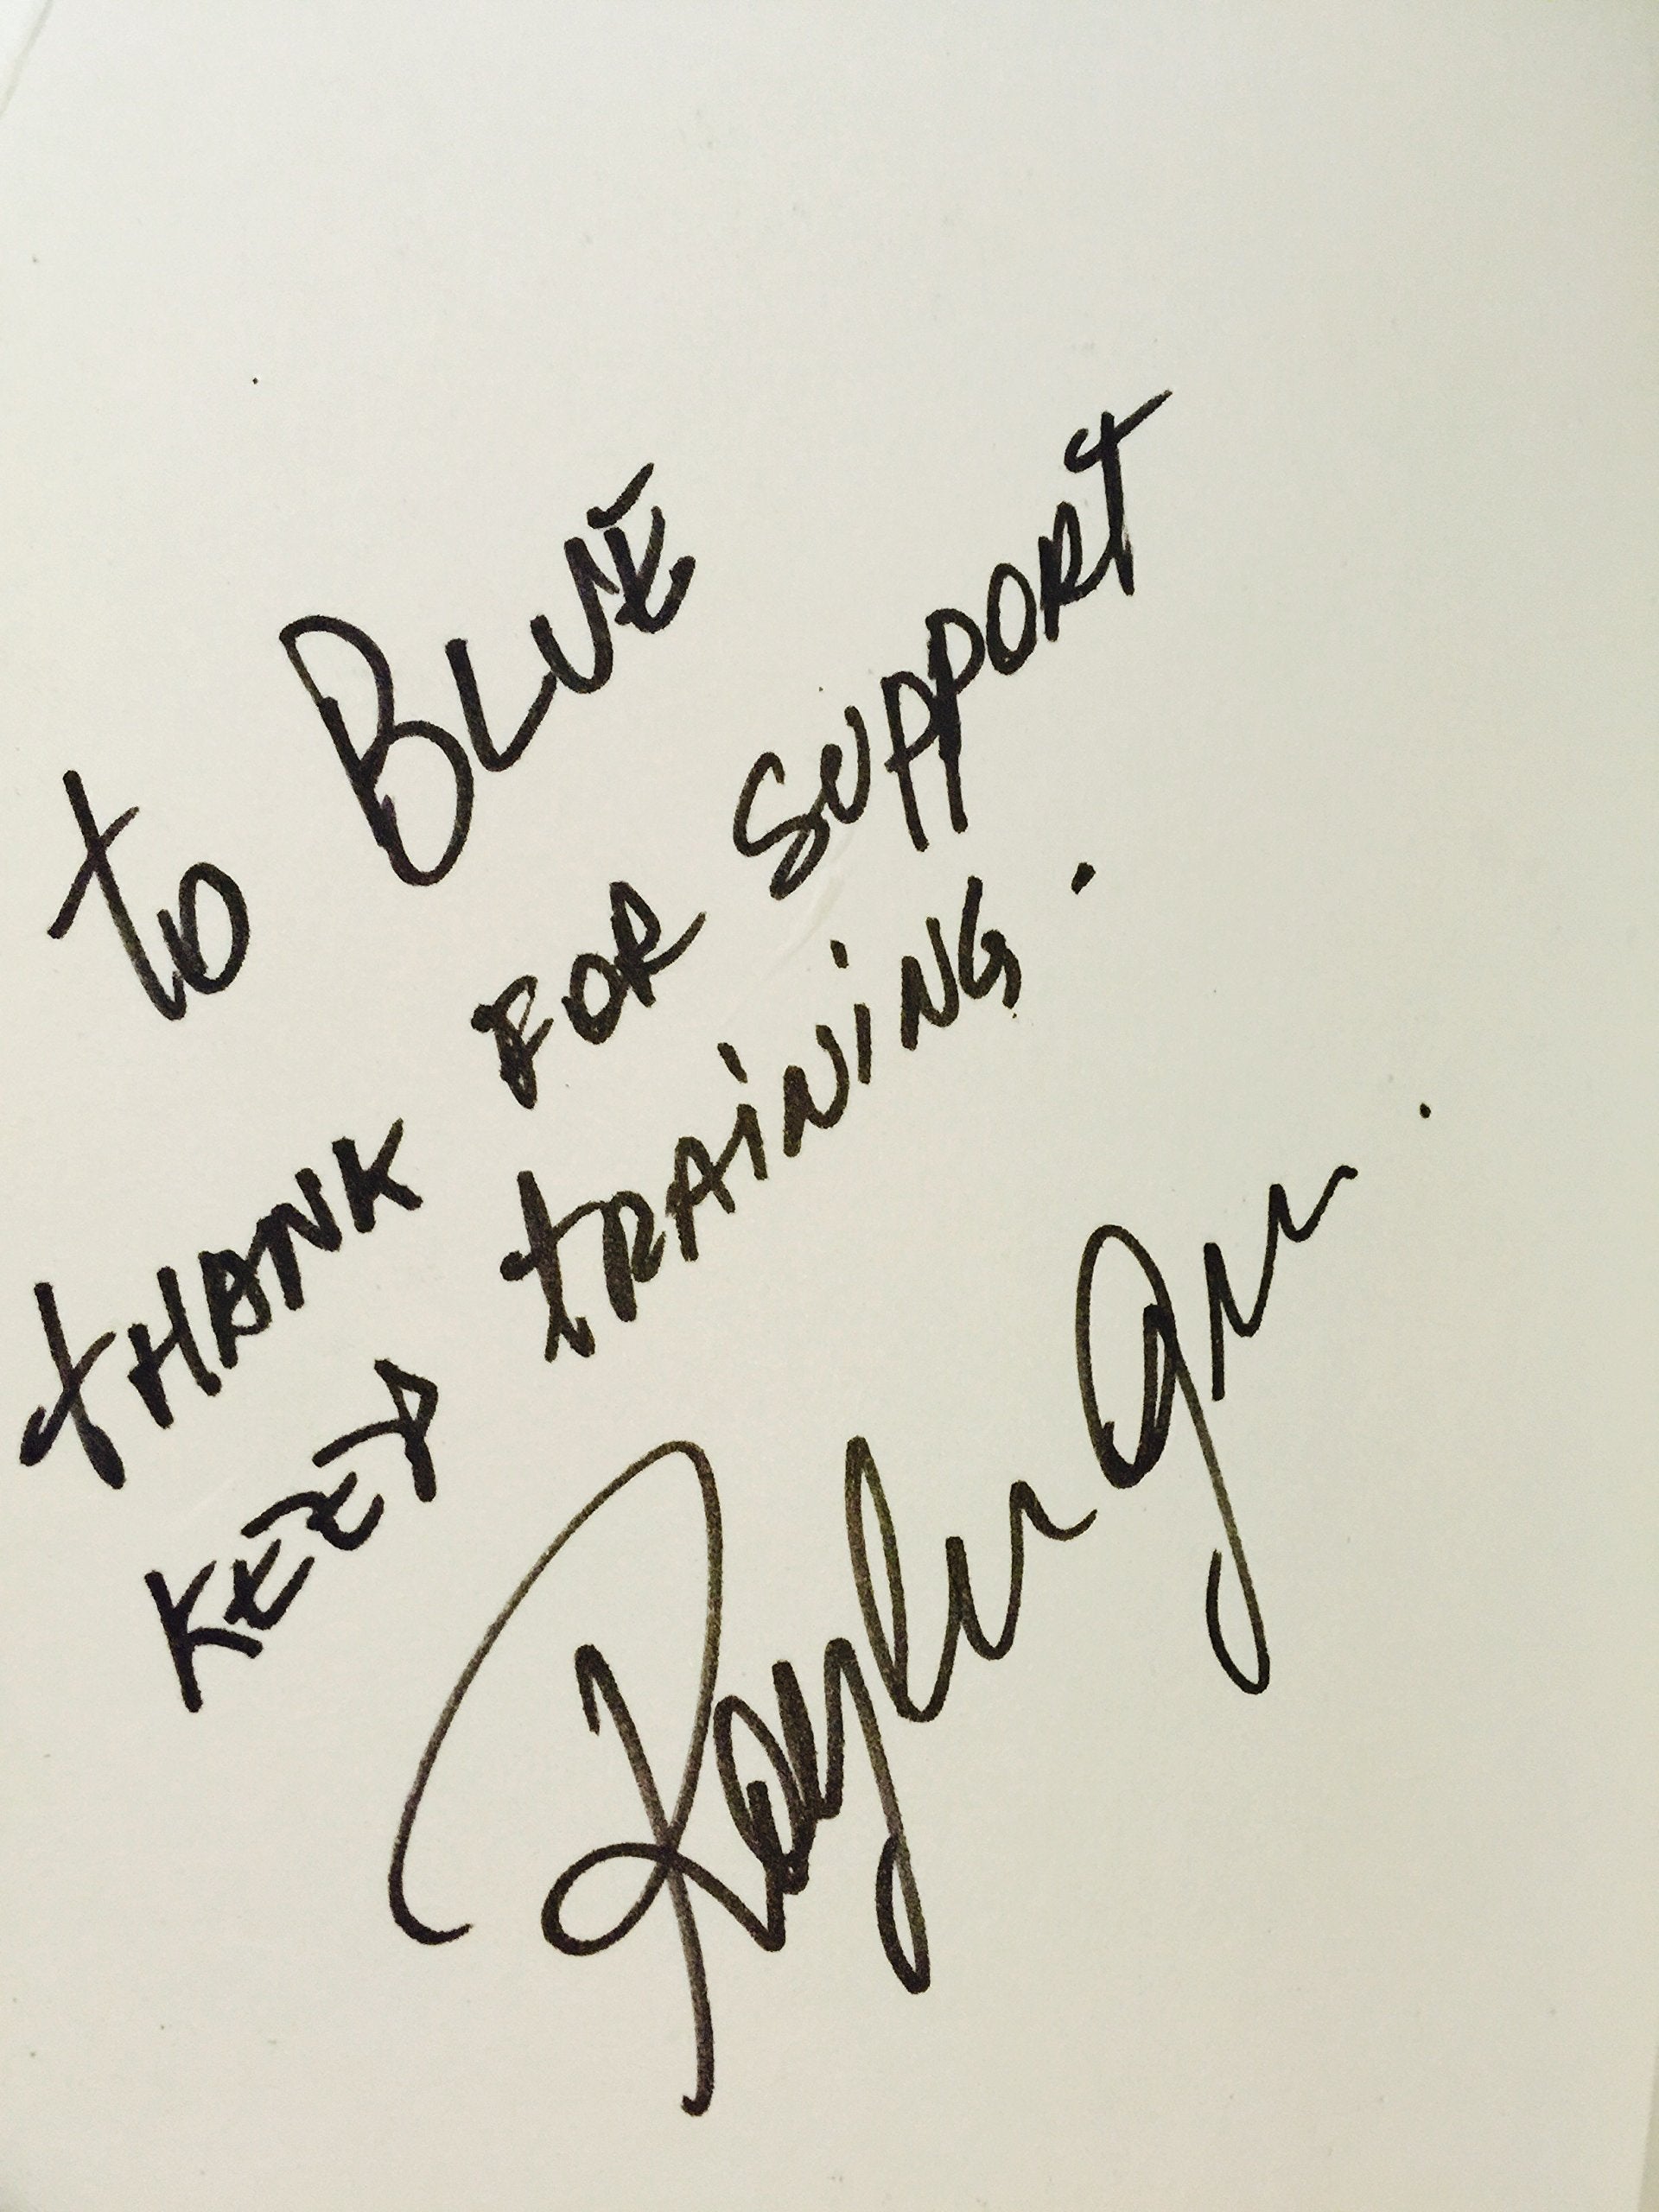 to BLUE
tHANK FOR SUPPORT
KEEP tRAiNiNG.